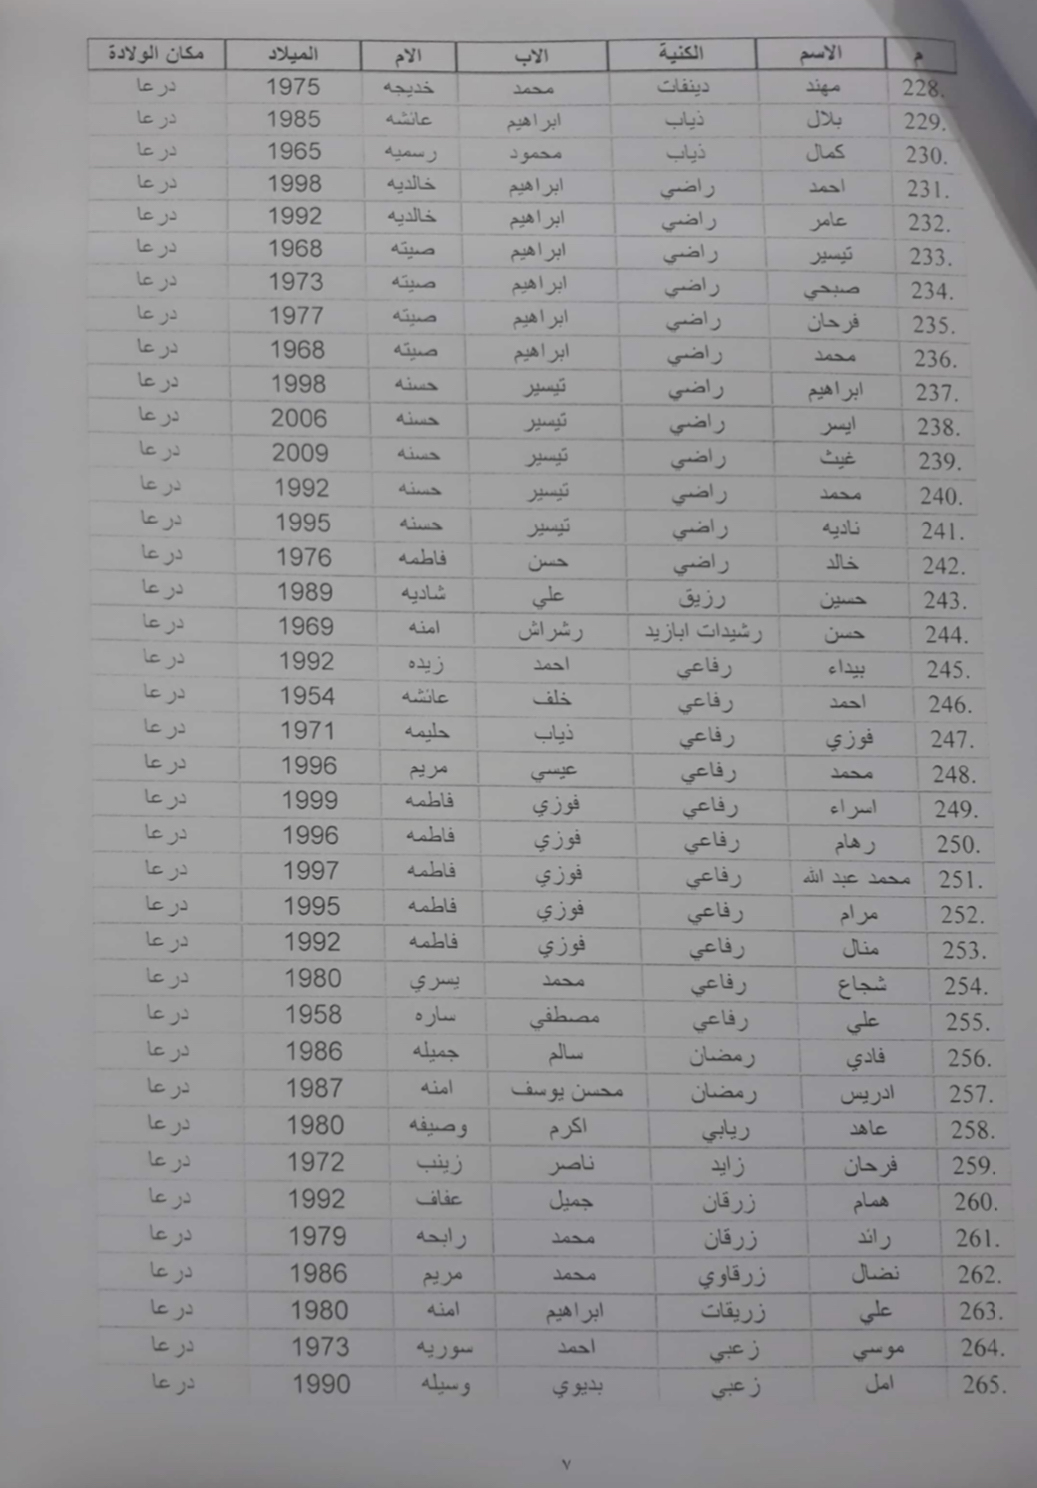 م الاسم الكنية الاب الام الميلاد مكان الولادة
228. مهند دينفات محمد خديجه 1975 درعا
229. بلال ذياب ابراهيم عائشه 1985 درعا
230. كمال ذياب محمود رسميه 1965 درعا
231. احمد راضي ابراهيم خالديه 1998 درعا
232. عامر راضي ابراهيم خالديه 1992 درعا
233. تيسير راضي ابراهيم صيته 1968 درعا
234. صبحي راضي ابراهيم صيته 1973 درعا
235. فرحان راضي ابراهيم صيته 1977 درعا
236. محمد راضي ابراهيم صيته 1968 درعا
237. ابراهيم راضي تيسير حسنه 1998 درعا
238. ايسر راضي تيسير حسنه 2006 درعا
239. غيث راضي تيسير حسنه 2009 درعا
240. محمد راضي تيسير حسنه 1992 درعا
241. ناديه راضي تيسير حسنه 1995 درعا
242. خالد راضي حسن فاطمه 1976 درعا
243. حسين رزيق علي شاديه 1989 درعا
244. حسن رشيدات ابازيد رشراش امنه 1969 درعا
245. بيداء رفاعي احمد زيده 1992 درعا
246. احمد رفاعي خلف عائشه 1954 درعا
247. فوزي رفاعي ذياب حليمه 1971 درعا
248. محمد رفاعي عيسي مريم 1996 درعا
249. اسراء رفاعي فوزي فاطمه 1999 درعا
250. رهام رفاعي فوزي فاطمه 1996 درعا
251. محمد عبد الله رفاعي فوزي فاطمه 1997 درعا
252. مرام رفاعي فوزي فاطمه 1995 درعا
253. منال رفاعي فوزي فاطمه 1992 درعا
254. شجاع رفاعي محمد يسري 1980 درعا
255. علي رفاعي مصطفي ساره 1958 درعا
256. فادي رمضان سالم جميله 1986 درعا
257. ادريس رمضان محسن يوسف امنه 1987 درعا
258. عاهد ريابي اكرم وصيفه 1980 درعا
259. فرحان زايد ناصر زينب 1972 درعا
260. همام زرقان جميل عفاف 1992 درعا
261. رائد زرقان محمد رابحه 1979 درعا
262. نضال زرقاوي محمد مريم 1986 درعا
263. علي زريقات ابراهيم امنه 1980 درعا
264. موسي زعبي احمد سوريه 1973 درعا
265. امل زعبي بديوي وسيله 1990 درعا
٧